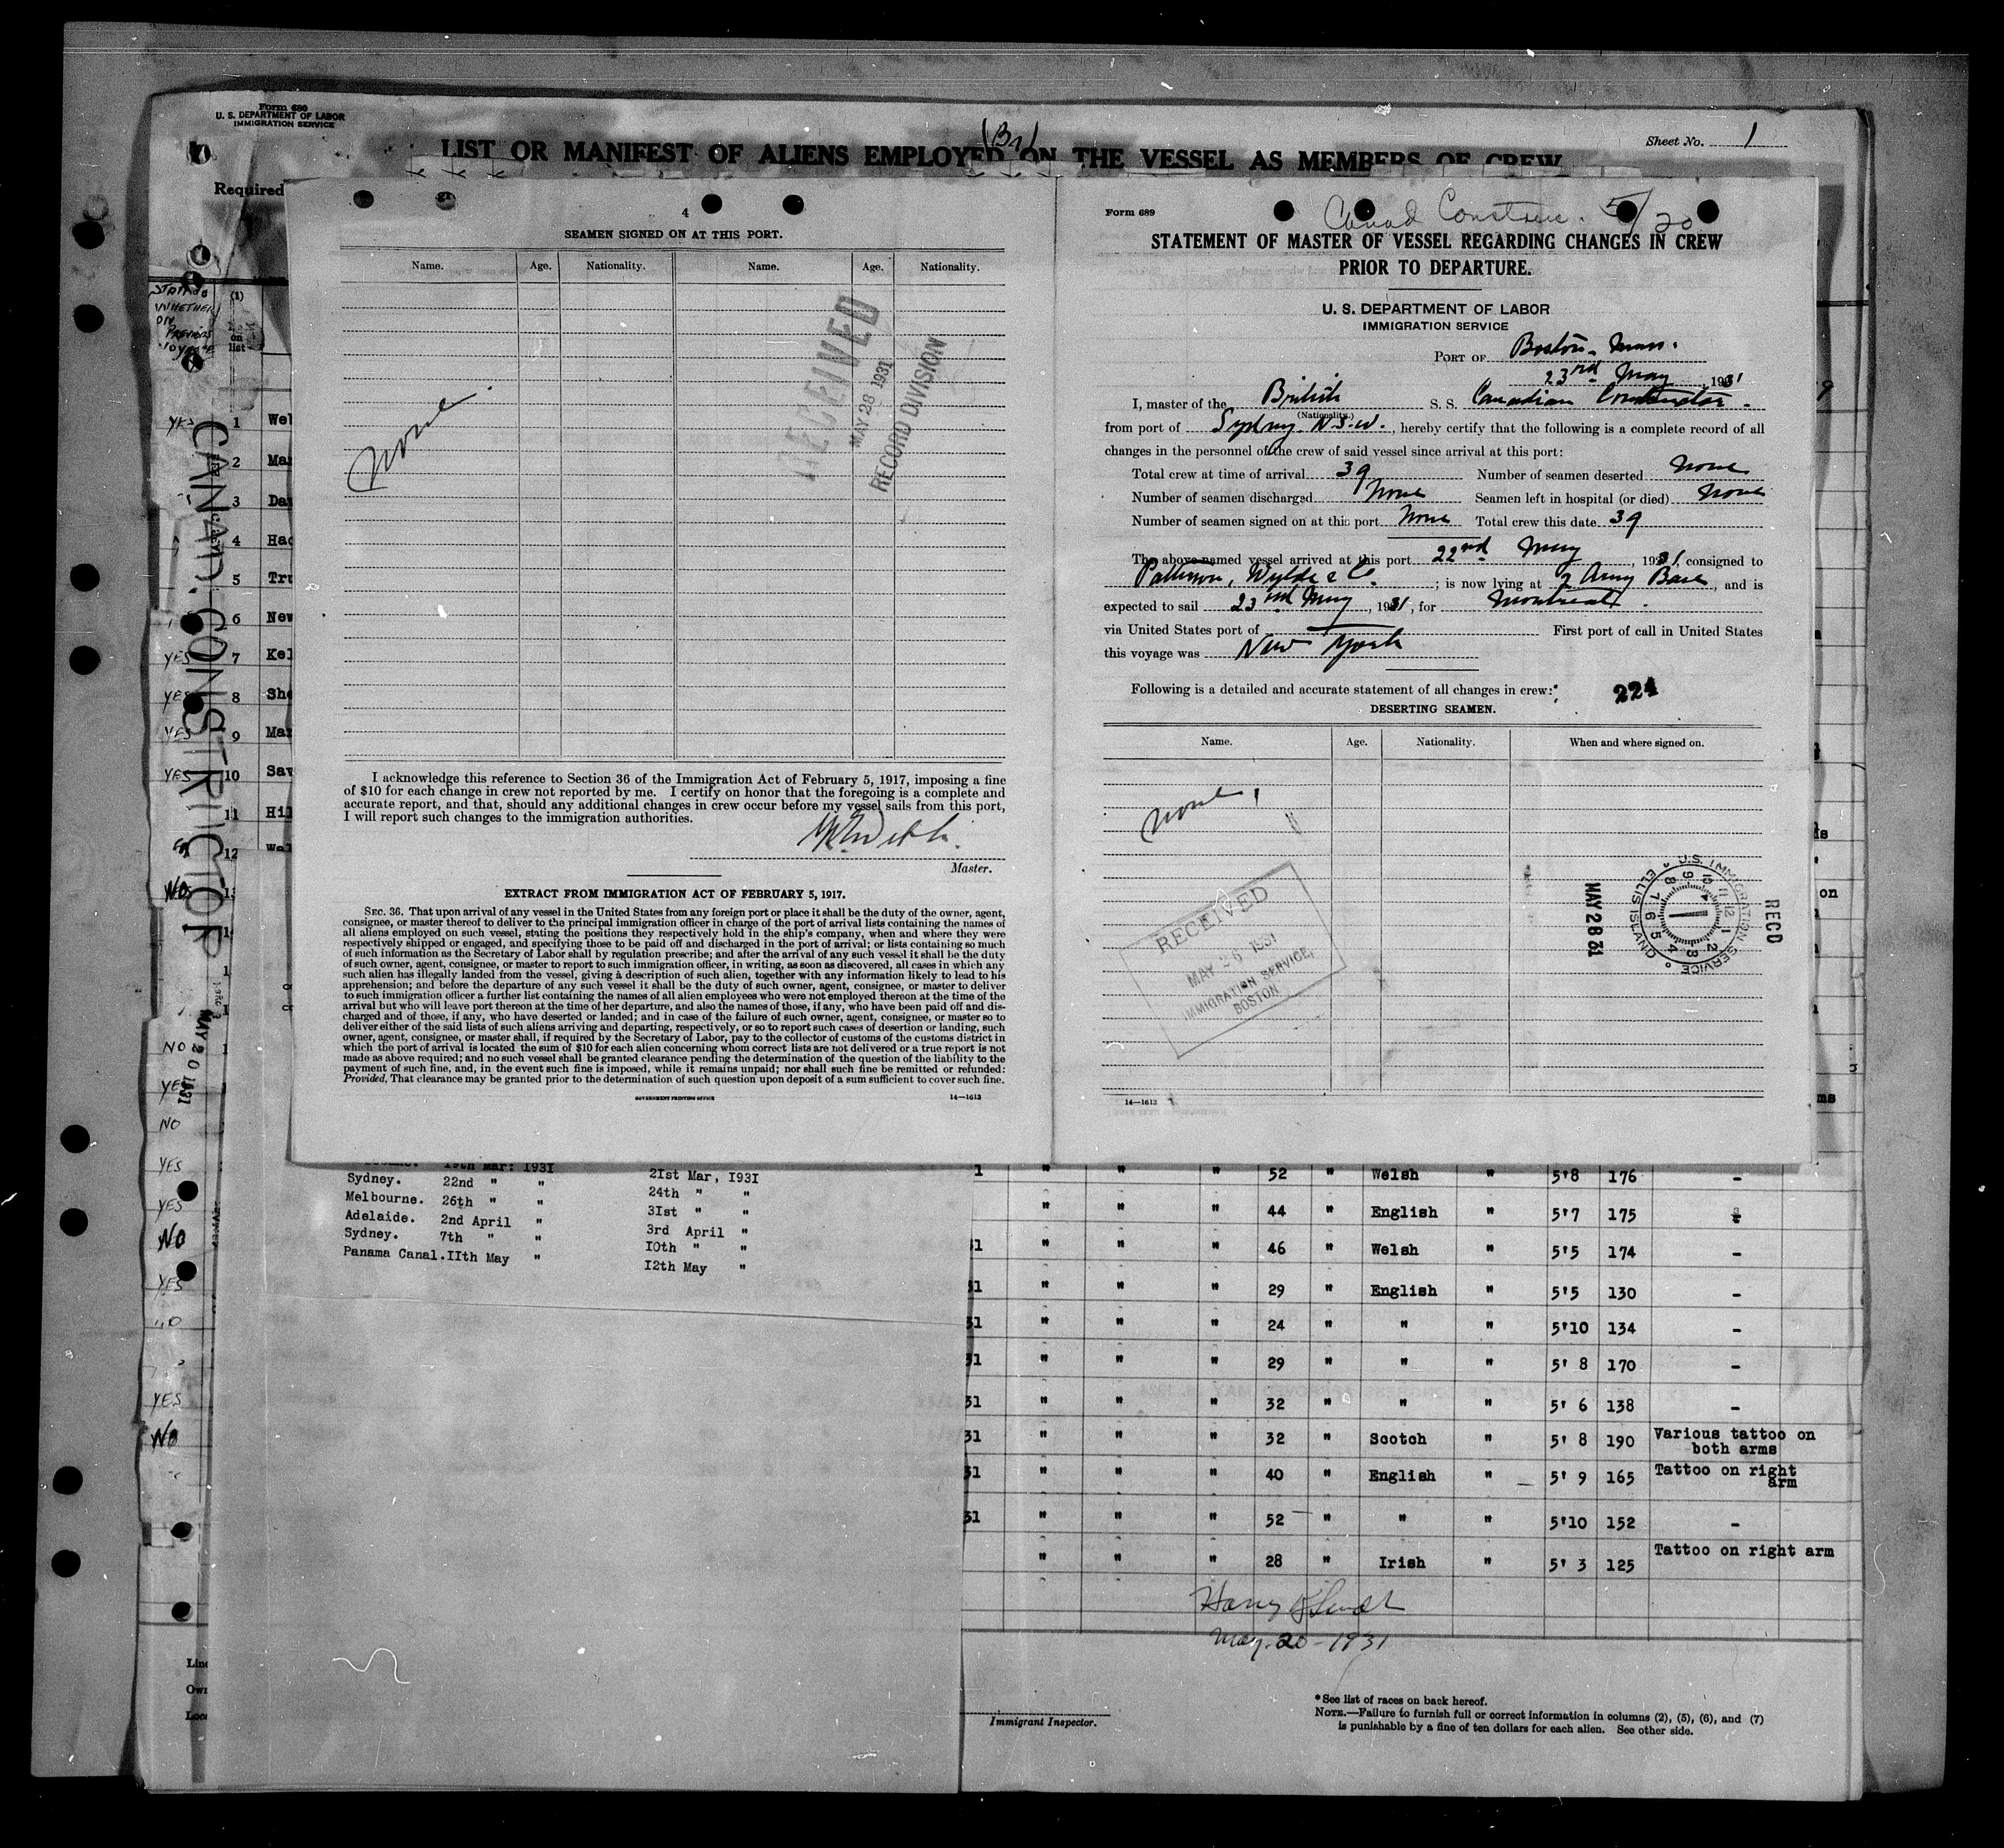 Form 680
U. S. DEPARTMENT OF LABOR
IMMIGRATION SERVICE
(Br)
Sheet No. 1
LIST OR MANIFEST OF ALIENS EMPLOYED ON THE VESSEL AS MEMBERS OF CREW
Required
STATING
WHETHER
ON
PREVIOUS
VOYAGE
(1)
on
list
YES 1 Wel
2 Mar
3 Da
4 Had
5 Tru
6 New
YES 7 Kel
YES 8 She
YES 9 Mar
YES 10 Sav
11 Hil
12 Wal
NO
NO
YES
NO
YES
YES
NO
YES
YES
NO
CANAD. CONSTRUCTOR
MAY 20 1931
4
SEAMEN SIGNED ON AT THIS PORT.
Name. Age. Nationality. Name. Age. Nationality.
none
RECEIVED
MAY 28 1931
RECORD DIVISION
I acknowledge this reference to Section 36 of the Immigration Act of February 5, 1917, imposing a fine
of $10 for each change in crew not reported by me. I certify on honor that the foregoing is a complete and
accurate report, and that, should any additional changes in crew occur before my vessel sails from this port,
I will report such changes to the immigration authorities.
Master.
EXTRACT FROM IMMIGRATION ACT OF FEBRUARY 5, 1917.
SEC. 36. That upon arrival of any vessel in the United States from any foreign port or place it shall be the duty of the owner, agent,
consignee, or master thereof to deliver to the principal immigration officer in charge of the port of arrival lists containing the names of
all aliens employed on such vessel, stating the positions they respectively hold in the ship's company, when and where they were
respectively shipped or engaged, and specifying those to be paid off and discharged in the port of arrival; or lists containing so much
of such information as the Secretary of Labor shall by regulation prescribe; and after the arrival of any such vessel it shall be the duty
of such owner, agent, consignee, or master to report to such immigration officer, in writing, as soon as discovered, all cases in which any
such alien has illegally landed from the vessel, giving a description of such alien, together with any information likely to lead to his
apprehension; and before the departure of any such vessel it shall be the duty of such owner, agent, consignee, or master to deliver
to such immigration officer a further list containing the names of all alien employees who were not employed thereon at the time of the
arrival but who will leave port thereon at the time of her departure, and also the names of those, if any, who have been paid off and dis-
charged and of those, if any, who have deserted or landed; and in case of the failure of such owner, agent, consignee, or master so to
deliver either of the said lists of such aliens arriving and departing, respectively, or so to report such cases of desertion or landing, such
owner, agent, consignee, or master shall, if required by the Secretary of Labor, pay to the collector of customs of the customs district in
which the port of arrival is located the sum of $10 for each alien concerning whom correct lists are not delivered or a true report is not
made as above required; and no such vessel shall be granted clearance pending the determination of the question of the liability to the
payment of such fine, and, in the event such fine is imposed, while it remains unpaid; nor shall such fine be remitted or refunded:
Provided, That clearance may be granted prior to the determination of such question upon deposit of a sum sufficient to cover such fine.
GOVERNMENT PRINTING OFFICE 14—1613
Form 689
Canad Construc. 5/20
STATEMENT OF MASTER OF VESSEL REGARDING CHANGES IN CREW
PRIOR TO DEPARTURE.
U. S. DEPARTMENT OF LABOR
IMMIGRATION SERVICE
PORT OF Boston. Mass.
23rd May, 1931
I, master of the British S. S. Canadian Constructor.
(Nationality.)
from port of Sydney. N.S.W., hereby certify that the following is a complete record of all
changes in the personnel of the crew of said vessel since arrival at this port:
Total crew at time of arrival 39 Number of seamen deserted none
Number of seamen discharged None Seamen left in hospital (or died) None
Number of seamen signed on at this port None Total crew this date 39
The above-named vessel arrived at this port 22nd May, 1931, consigned to
Patterson, Wylde & Co. ; is now lying at 2 Army Base, and is
expected to sail 23rd May, 1931, for Montreal.
via United States port of — First port of call in United States
this voyage was New York
Following is a detailed and accurate statement of all changes in crew:
224
DESERTING SEAMEN.
Name. Age. Nationality. When and where signed on.
none
RECEIVED
MAY 26 1931
IMMIGRATION SERVICE,
BOSTON
RECD
U.S. IMMIGRATION SERVICE
ELLIS ISLAND
MAY 28 31
14—1613
19th Mar: 1931 21st Mar, 1931
Sydney. 22nd " " 24th " "
Melbourne. 26th " " 31st " "
Adelaide. 2nd April " 3rd April "
Sydney. 7th " " 10th " "
Panama Canal. 11th May " 12th May "
1 " " " 52 " Welsh " 5'8 176 -
" " " 44 " English " 5'7 175
31 " " " 46 " Welsh " 5'5 174 -
31 " " " 29 " English " 5'5 130 -
31 " " " 24 " " " 5'10 134 -
31 " " " 29 " " " 5' 8 170 -
31 " " " 32 " " " 5' 6 138 -
31 " " " 32 " Scotch " 5' 8 190 Various tattoo on
both arms
31 " " " 40 " English " 5' 9 165 Tattoo on right
arm
31 " " " 52 " " " 5'10 152 -
" " " 28 " Irish " 5' 3 125 Tattoo on right arm
May. 20-1931
Immigrant Inspector.
*See list of races on back hereof.
NOTE.—Failure to furnish full or correct information in columns (2), (5), (6), and (7)
is punishable by a fine of ten dollars for each alien. See other side.